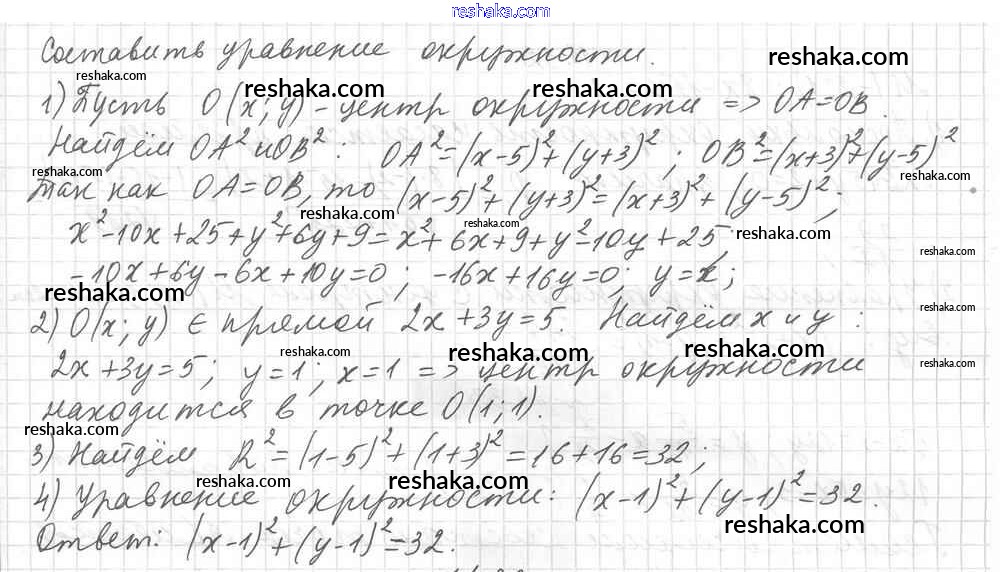 reshaka.com
Составить уравнение окружности.
reshaka.com
reshaka.com
reshaka.com
reshaka.com
1) Пусть O(x; y) - центр окружности => OA=OB.
reshaka.com
Найдём OA² и OB²: OA²=(x-5)²+(y+3)²; OB²=(x+3)²+(y-5)²
reshaka.com
reshaka.com
Так как OA=OB, то (x-5)²+(y+3)²=(x+3)²+(y-5)²;
reshaka.com
reshaka.com
x²-10x+25+y²+6y+9=x²+6x+9+y²-10y+25;
reshaka.com
-10x+6y-6x+10y=0; -16x+16y=0; y=x;
reshaka.com
reshaka.com
2) O(x; y) ∈ прямой 2x+3y=5. Найдём x и y:
reshaka.com
reshaka.com
reshaka.com
reshaka.com
2x+3y=5; y=1; x=1 => центр окружности
находится в точке O(1;1).
reshaka.com
3) Найдём R²=(1-5)²+(1+3)²=16+16=32;
reshaka.com
reshaka.com
reshaka.com
4) Уравнение окружности: (x-1)²+(y-1)²=32.
reshaka.com
Ответ: (x-1)²+(y-1)²=32.